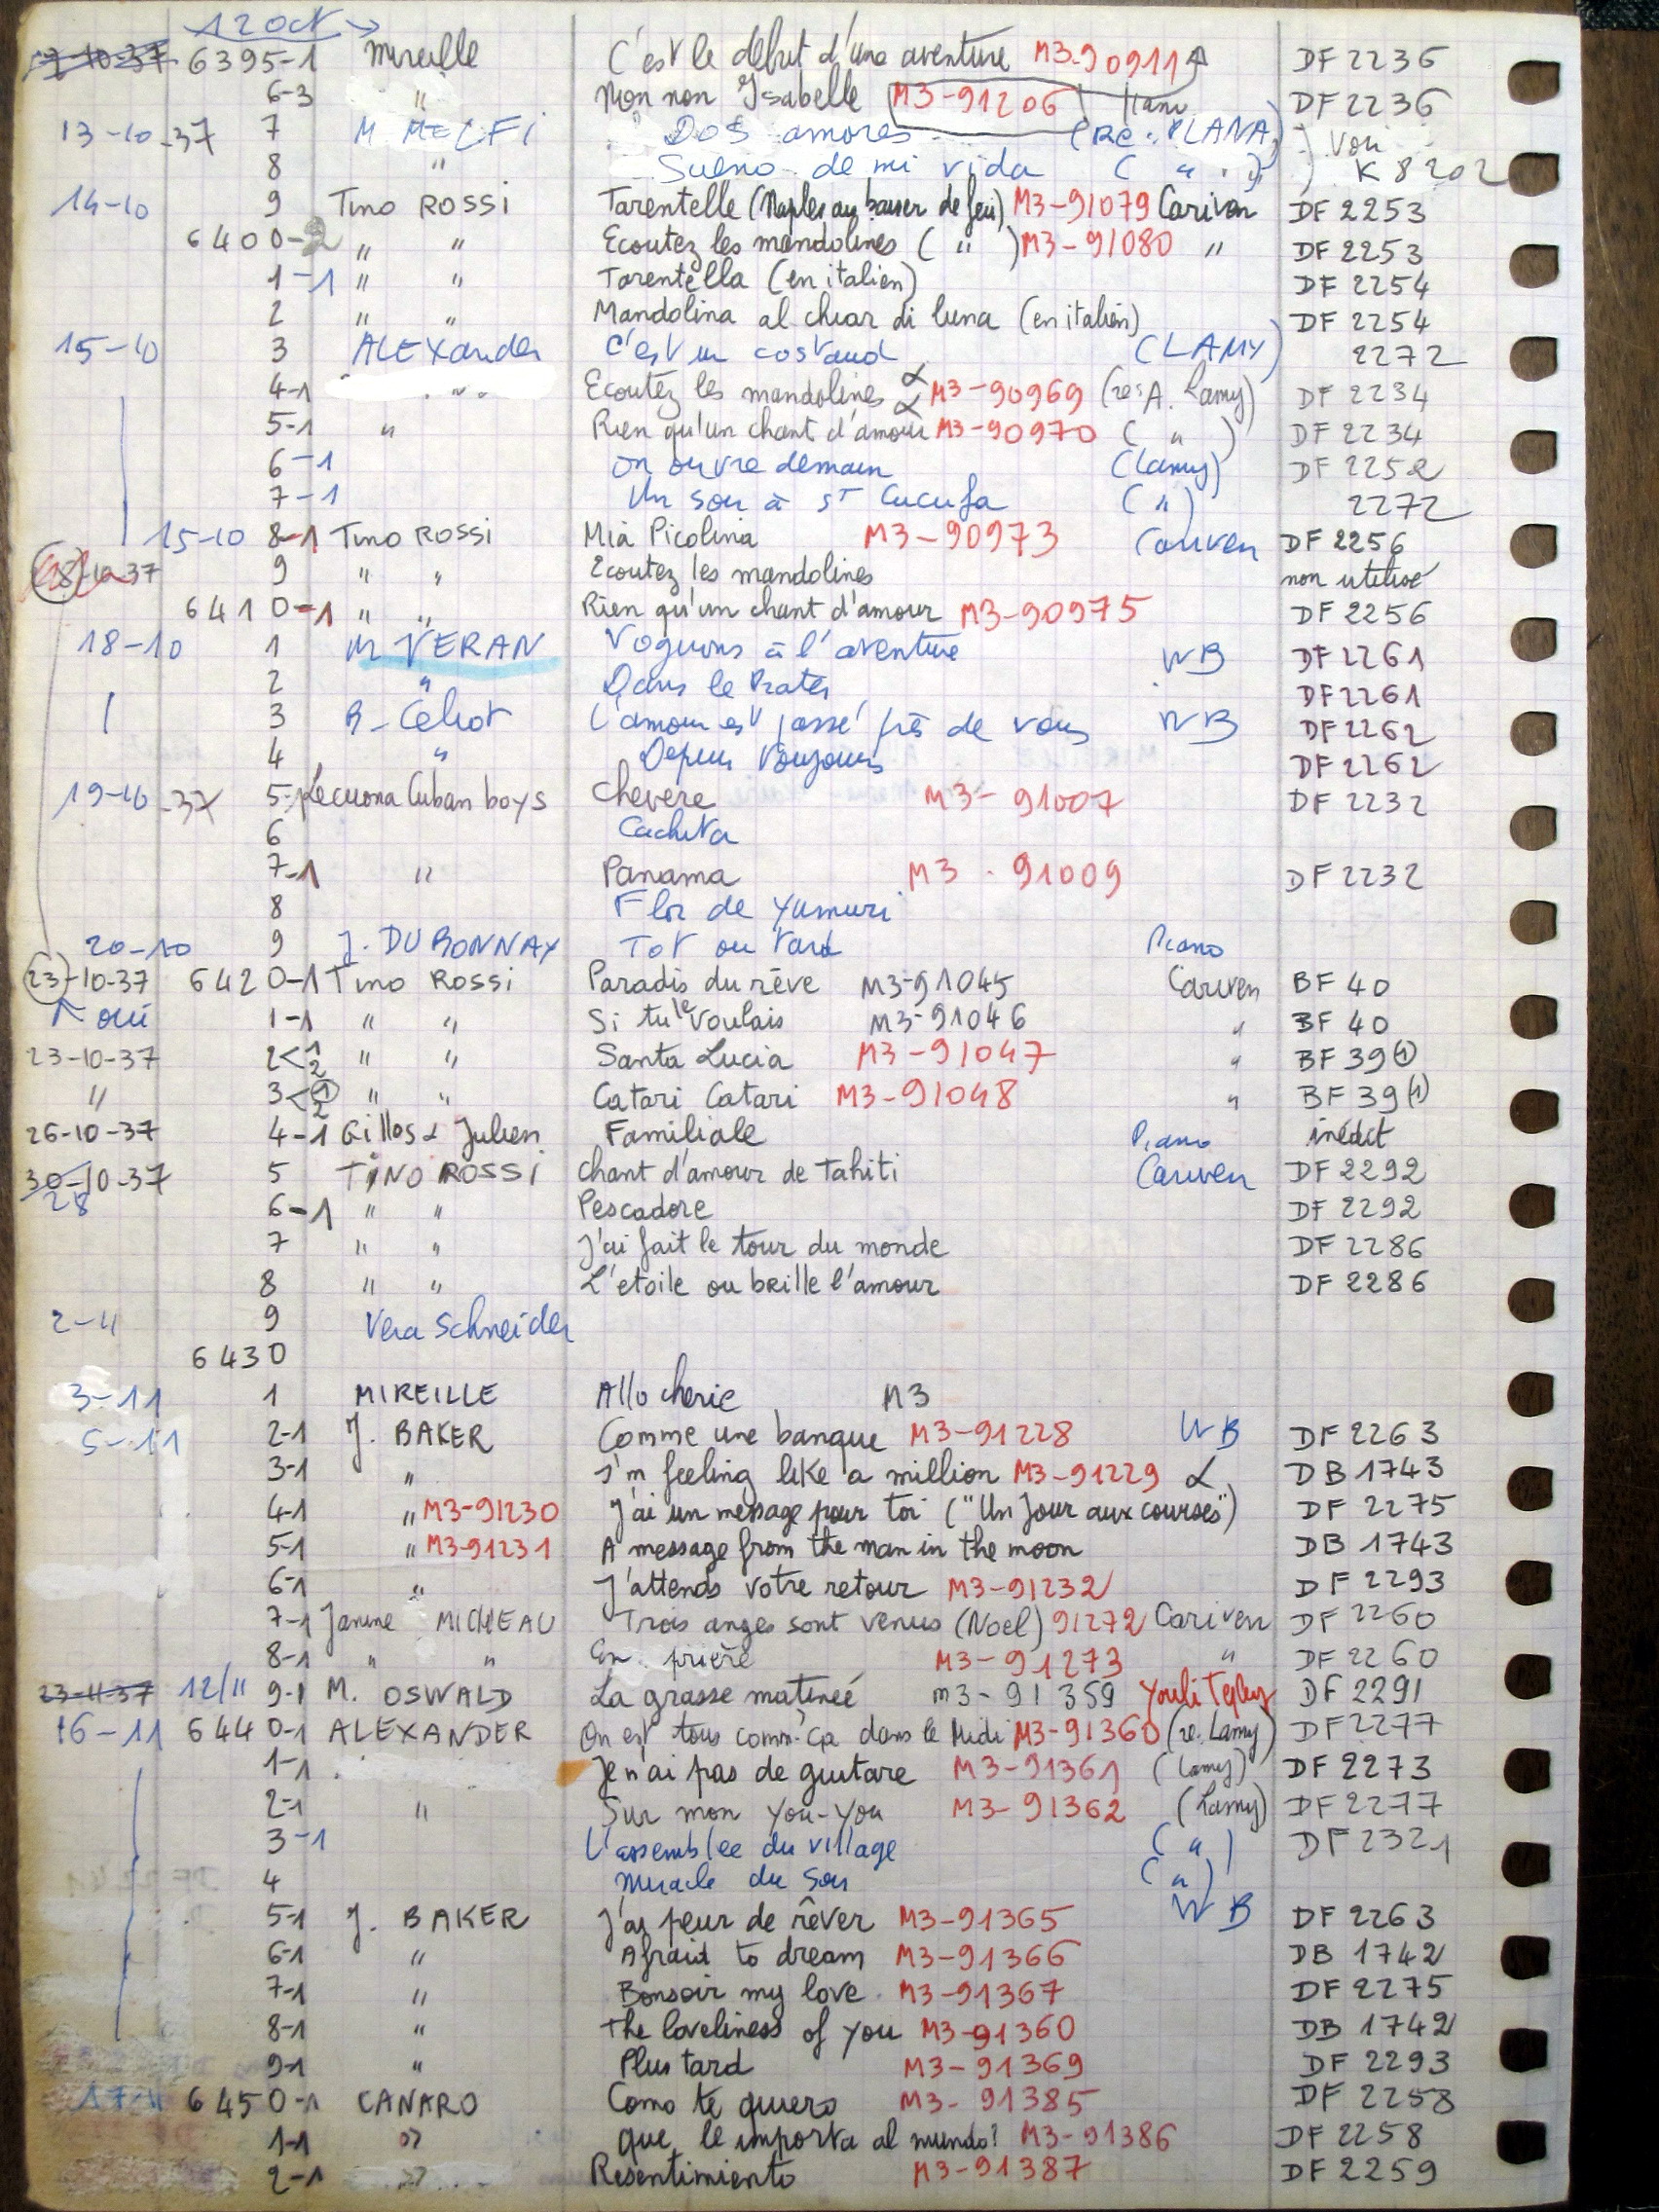 12 Oct →
12-10-37 6395-1 Mireille C'est le debut d'une aventure M3-90911 DF 2236
6-3 " Non non Isabelle M3-91206 DF 2236
13-10-37 7 M MELFi Dos amores (Re. PLANA) voir
8 " Sueno de mi vida ( " " ) K 8202
14-10 9 Tino ROSSI Tarentelle (Naples au baiser de feu) M3-91079 Cariven DF 2253
6400-2 " " Ecoutez les mandolines ( " ) M3-91080 " DF 2253
1-1 " " Tarentella (en italien) DF 2254
2 " " Mandolina al chiar di luna (en italien) DF 2254
15-10 3 ALEXander C'est un costaud (LAMY) 2272
4-1 " Ecoutez les mandolines M3-90969 (re: A. Lamy) DF 2234
5-1 " Rien qu'un chant d'amour M3-90970 ( " ) DF 2234
6-1 on ouvre demain (Lamy) DF 2252
7-1 Un soir à St Cucufa ( " ) 2272
15-10 8-1 Tino ROSSI Mia Picolina M3-90973 Cariven DF 2256
18-10-37 9 " " Ecoutez les mandolines non utilisé
6410-1 " " Rien qu'un chant d'amour M3-90975 DF 2256
18-10 1 M VERAN Voguons à l'aventure WB DF 2261
2 " Dans le Prater DF 2261
3 R. Celiot L'amour est passé près de vous WB DF 2262
4 " Depuis toujours DF 2262
19-10-37 5-1 Lecuona Cuban boys Chevere M3-91007 DF 2232
6 Cachita
7-1 " Panama M3-91009 DF 2232
8 Flor de Yumuri
20-10 9 J. DUBONNAY Tot ou tard Piano
23-10-37 6420-1 Tino ROSSI Paradis du rêve M3-91045 Cariven BF 40
↑ oui 1-1 " " Si tu le voulais M3-91046 " BF 40
23-10-37 2<1 2 " " Santa Lucia M3-91047 " BF 39 (1)
" 3<1 2 " " Catari Catari M3-91048 " BF 39 (1)
26-10-37 4-1 Gilles & Julien Familiale Piano inédit
30-10-37 5 TINO ROSSI Chant d'amour de Tahiti Cariven DF 2292
28 6-1 " " Pescadore DF 2292
7 " " J'ai fait le tour du monde DF 2286
8 " " L'etoile ou brille l'amour DF 2286
2-11 9 Vera Schneider
6430
3-11 1 MIREILLE Allo cherie M3
5-11 2-1 J. BAKER Comme une banque M3-91228 WB DF 2263
3-1 " I'm feeling like a million M3-91229 DB 1743
4-1 " M3-91230 J'ai un message pour toi ("Un Jour aux courses") DF 2275
5-1 " M3-91231 A message from the man in the moon DB 1743
6-1 " J'attends votre retour M3-91232 DF 2293
7-1 Janine MICHEAU Trois anges sont venus (Noel) 91272 Cariven DF 2260
8-1 " " En prière M3-91273 " DF 2260
23-11-37 12/11 9-1 M. OSWALD La grasse matineé M3-91359 DF 2291
16-11 6440-1 ALEXANDER On est tous comm'ça dans le Midi M3-91360 (re. Lamy) DF 2277
1-1 Je n'ai pas de guitare M3-91361 (Lamy) DF 2273
2-1 " Sur mon you-you M3-91362 (Lamy) DF 2277
3-1 L'assemblee du village ( " ) DF 2321
4 Miracle du soir ( " )
5-1 J. BAKER J'ai peur de rêver M3-91365 WB DF 2263
6-1 " Afraid to dream M3-91366 DB 1742
7-1 " Bonsoir my love M3-91367 DF 2275
8-1 " The loveliness of you M3-91360 DB 1742
9-1 " Plus tard M3-91369 DF 2293
17-11 6450-1 CANARO Como te quiero M3-91385 DF 2258
1-1 " que le importa al mundo? M3-91386 DF 2258
2-1 " Resentimiento M3-91387 DF 2259